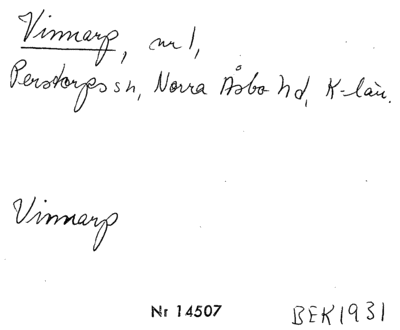 Vinnarp, nr 1,
Perstorps sn, Norra Åsbo hd, K-län.
Vinnarp
Nr 14507
BEK 1931